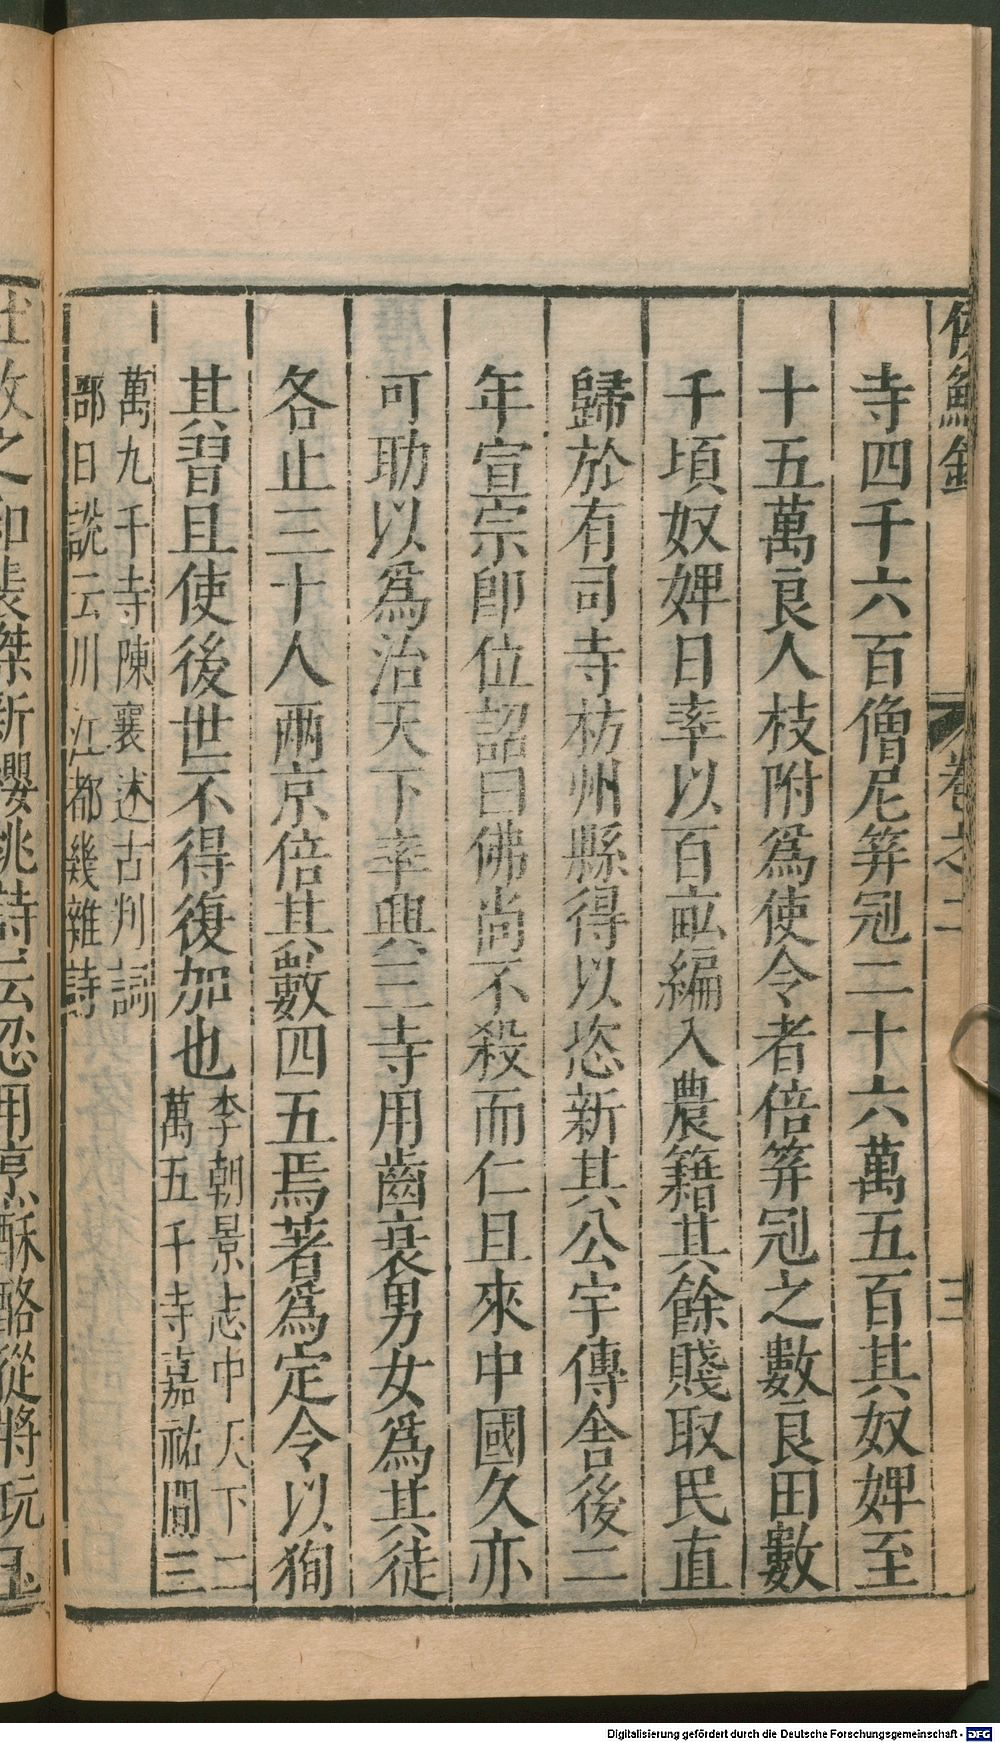 侯鯖錄 卷之二 三
寺四千六百僧尼筭冠二十六萬五百其奴婢至
十五萬良人枝附爲使令者倍筭冠之數良田數
千頃奴婢日率以百畝編入農籍其餘賤取民直
歸於有司寺材州縣得以恣新其公宇傳舍後二
年宣宗即位詔曰佛尚不殺而仁且來中國久亦
可助以爲治天下率興三寺用齒衰男女爲其徒
各止三十人兩京倍其數四五焉著爲定令以狥
其習且使後世不得復加也
李朝景志中天下二
萬五千寺嘉祐間三
萬九千寺陳襄述古判祠
部日說云川江都幾雜詩
牧之和裴傑新櫻桃詩云忍用烹酥酪從將玩玉
Digitalisierung gefördert durch die Deutsche Forschungsgemeinschaft - DFG